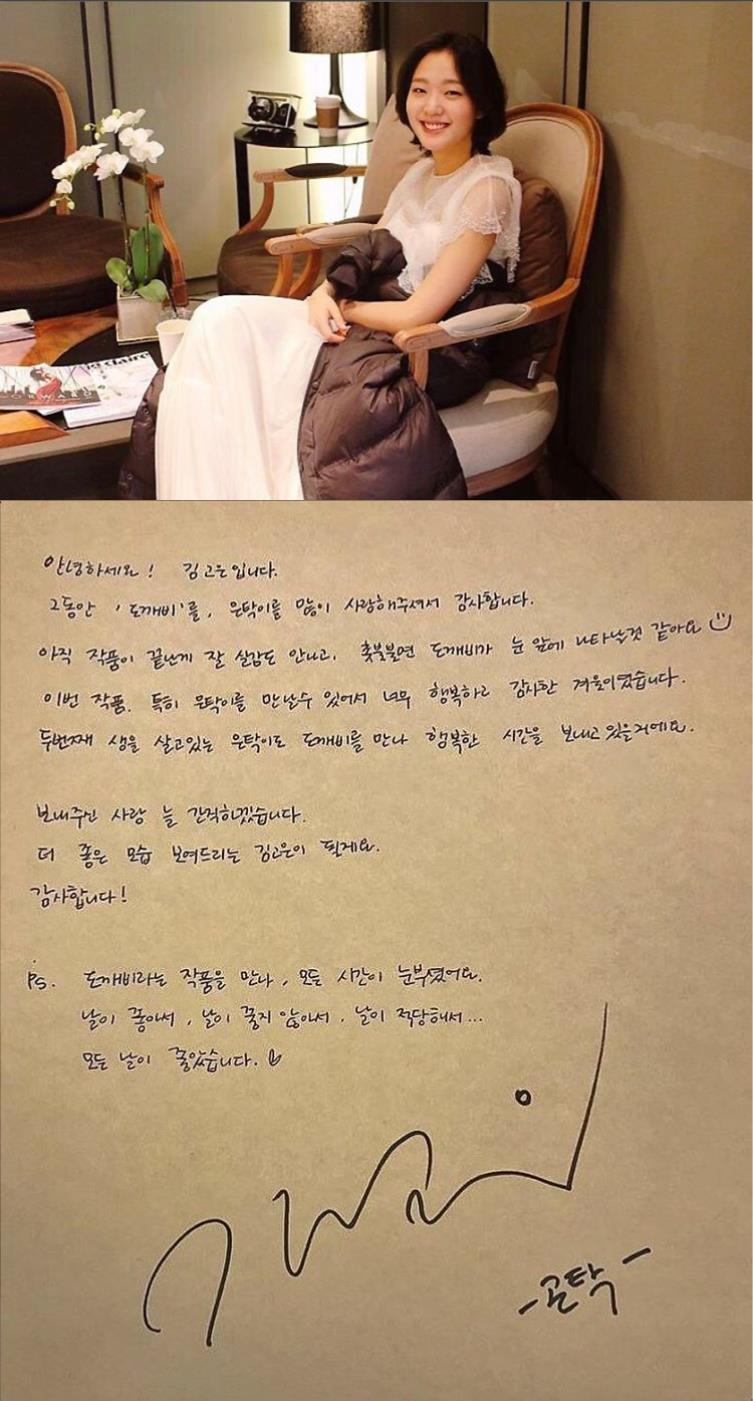 laire
FORWARD
안녕하세요! 김고은입니다.
그동안 '도깨비'를, 은탁이를 많이 사랑해주셔서 감사합니다.
아직 작품이 끝난게 잘 실감도 안나고, 훅불불면 도깨비가 눈 앞에 나타날것 같아요
이번 작품. 특히 은탁이를 만날수 있어서 너무 행복하고 감사한 겨울이였습니다.
두번째 생을 살고있는 은탁이도 도깨비를 만나 행복한 시간을 보내고 있을거에요.
보내주신 사랑 늘 간직하겠습니다.
더 좋은 모습 보여드리는 김고은이 될게요.
감사합니다!
PS. 도깨비라는 작품을 만나, 모든 시간이 눈부셨어요.
날이 좋아서, 날이 좋지 않아서. 날이 적당해서...
모든 날이 좋았습니다.